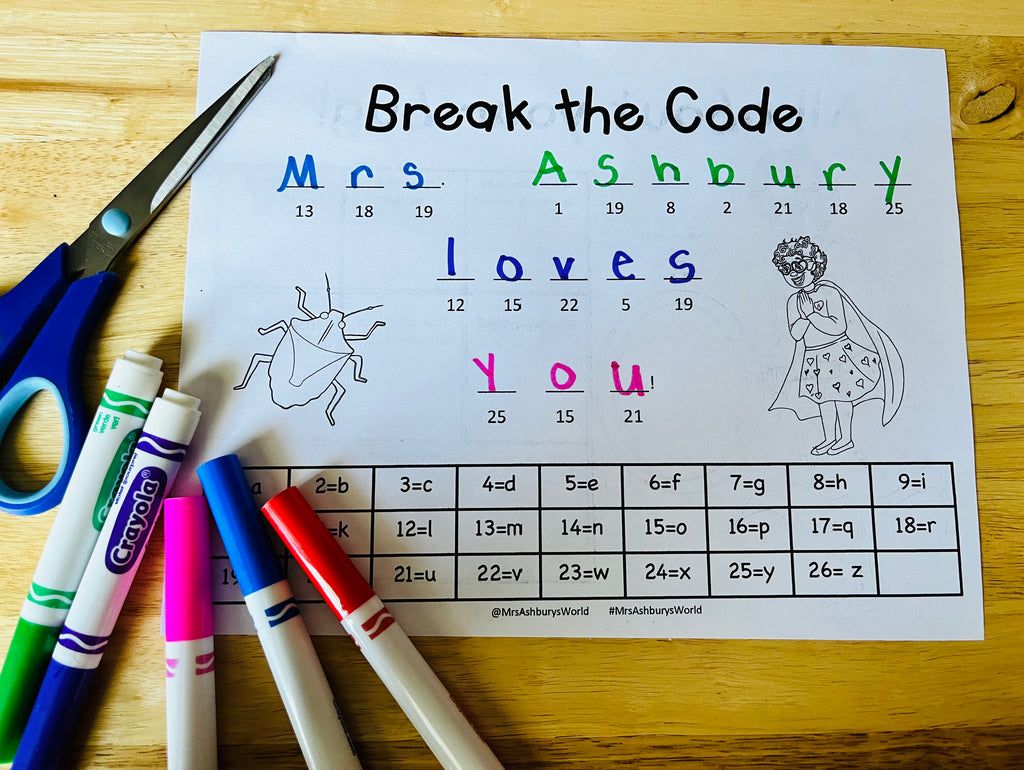 Break the Code
Mrs. Ashbury
13 18 19 1 19 8 2 21 18 25
loves
12 15 22 5 19
you!
25 15 21
a 2=b 3=c 4=d 5=e 6=f 7=g 8=h 9=i
=k 12=l 13=m 14=n 15=o 16=p 17=q 18=r
19 21=u 22=v 23=w 24=x 25=y 26= z
@MrsAshburysWorld #MrsAshburysWorld
green
verde
vert
Crayola